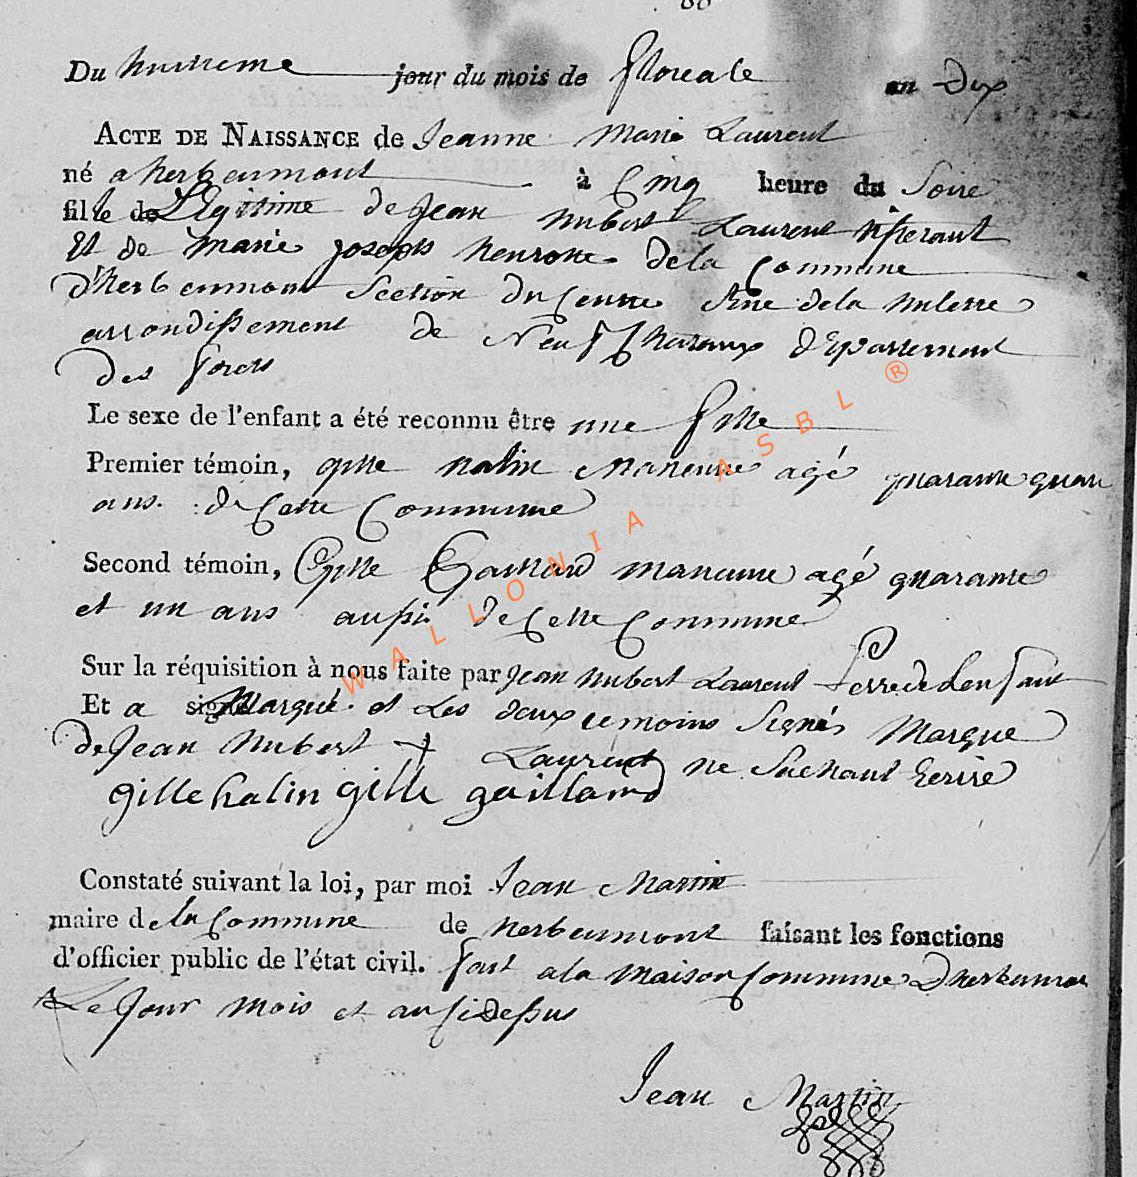 Du huitieme jour du mois de floreale an Dix
ACTE DE NAISSANCE de Jeanne Marie Laurent
né a herbeumont à Cinq heure du Soire
fille de Legitime de Jean hubert Laurent
Et de Marie joseph henrotte de la Commune
D'herbeumont Section du Centre de la
arrondissement de Neufchateaux departement
Des forets
Le sexe de l'enfant a été reconnu être une fille
Premier témoin, gille halin agé quarante quatre
ans de Cette Commune
Second témoin, Gille Gaillard agé quarante
et un ans aussi de Cette Commune
Sur la réquisition à nous faite par Jean hubert Laurent Perre de Lenfant
Et a signé Marqué et Les deux temoins Signés Marque
De Jean hubert + Laurent ne Sachant Ecrire
gille halin gille gaillard
Constaté suivant la loi, par moi Jean Martin
maire de la Commune de herbeumont faisant les fonctions
d'officier public de l'état civil. fait a la Maison Commune D'herbeumont
Le Jour Mois et an Ci Dessus
Jean Martin
WALLONIA ASBL ®